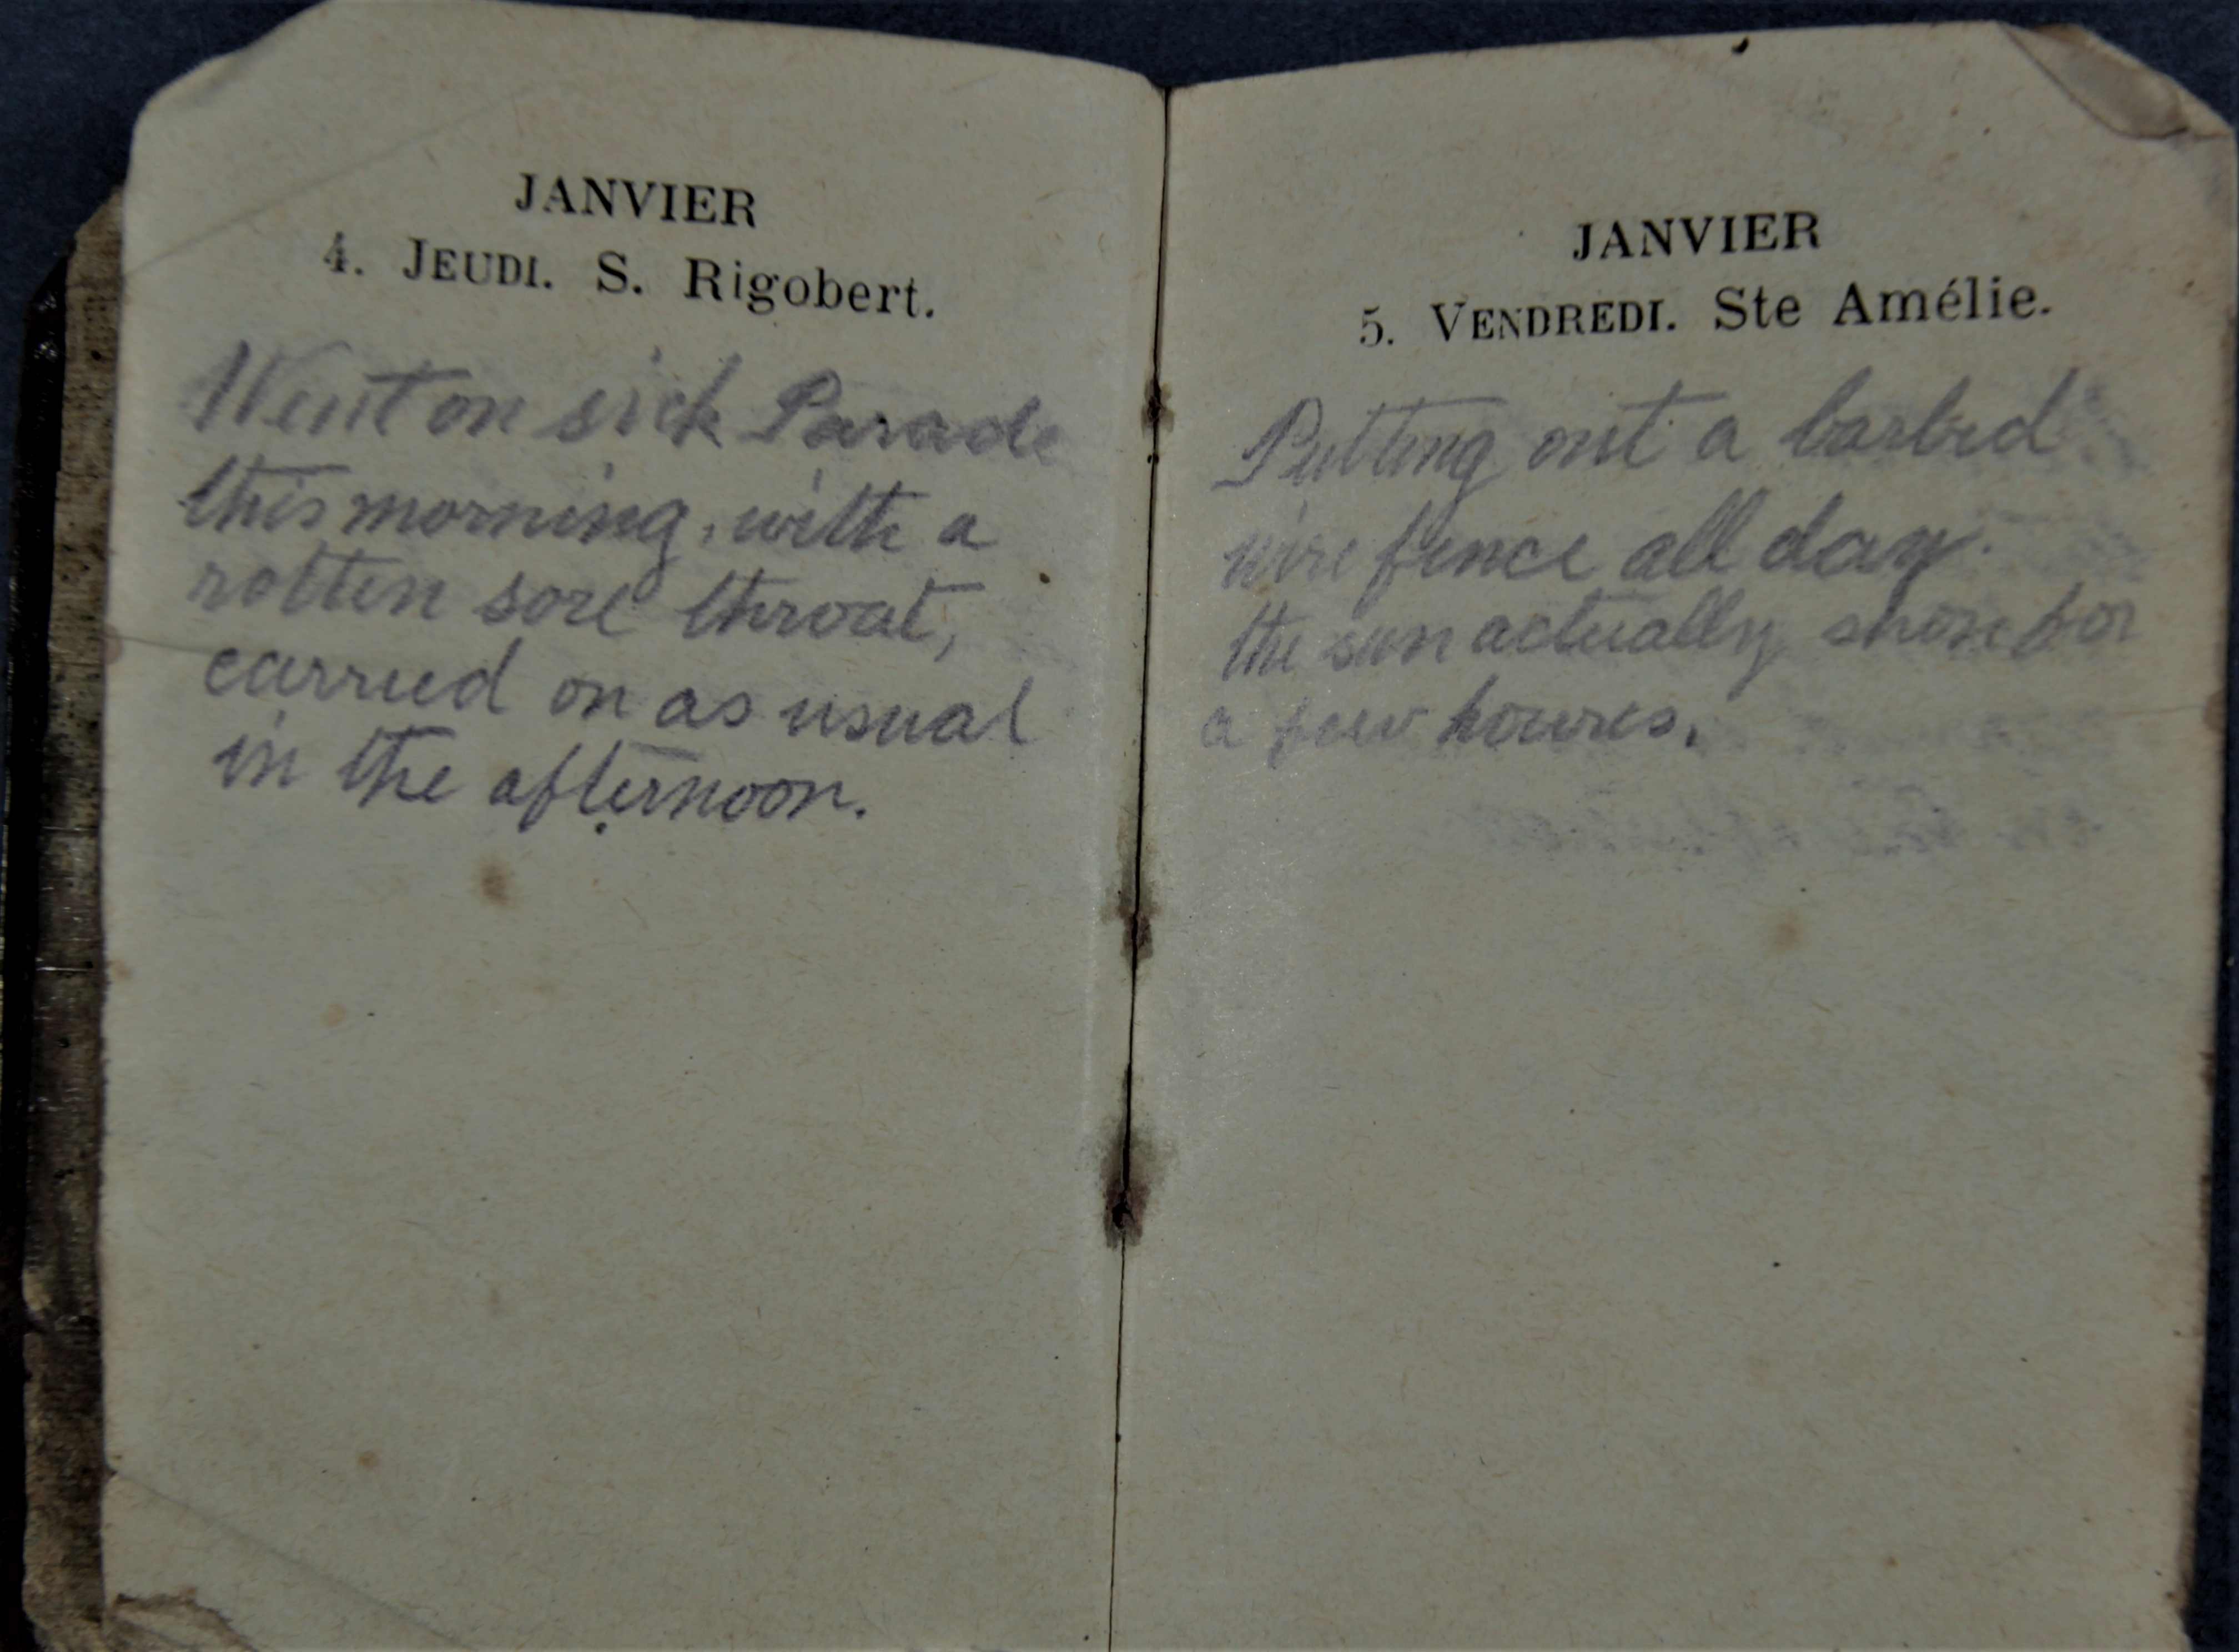 JANVIER
4. JEUDI. S. Rigobert.
Went on sick Parade
this morning, with a
rotten sore throat,
carried on as usual
in the afternoon.
JANVIER
5. VENDREDI. Ste Amélie.
Putting out a barbed
wire fence all day.
the sun actually shone for
a few houres.